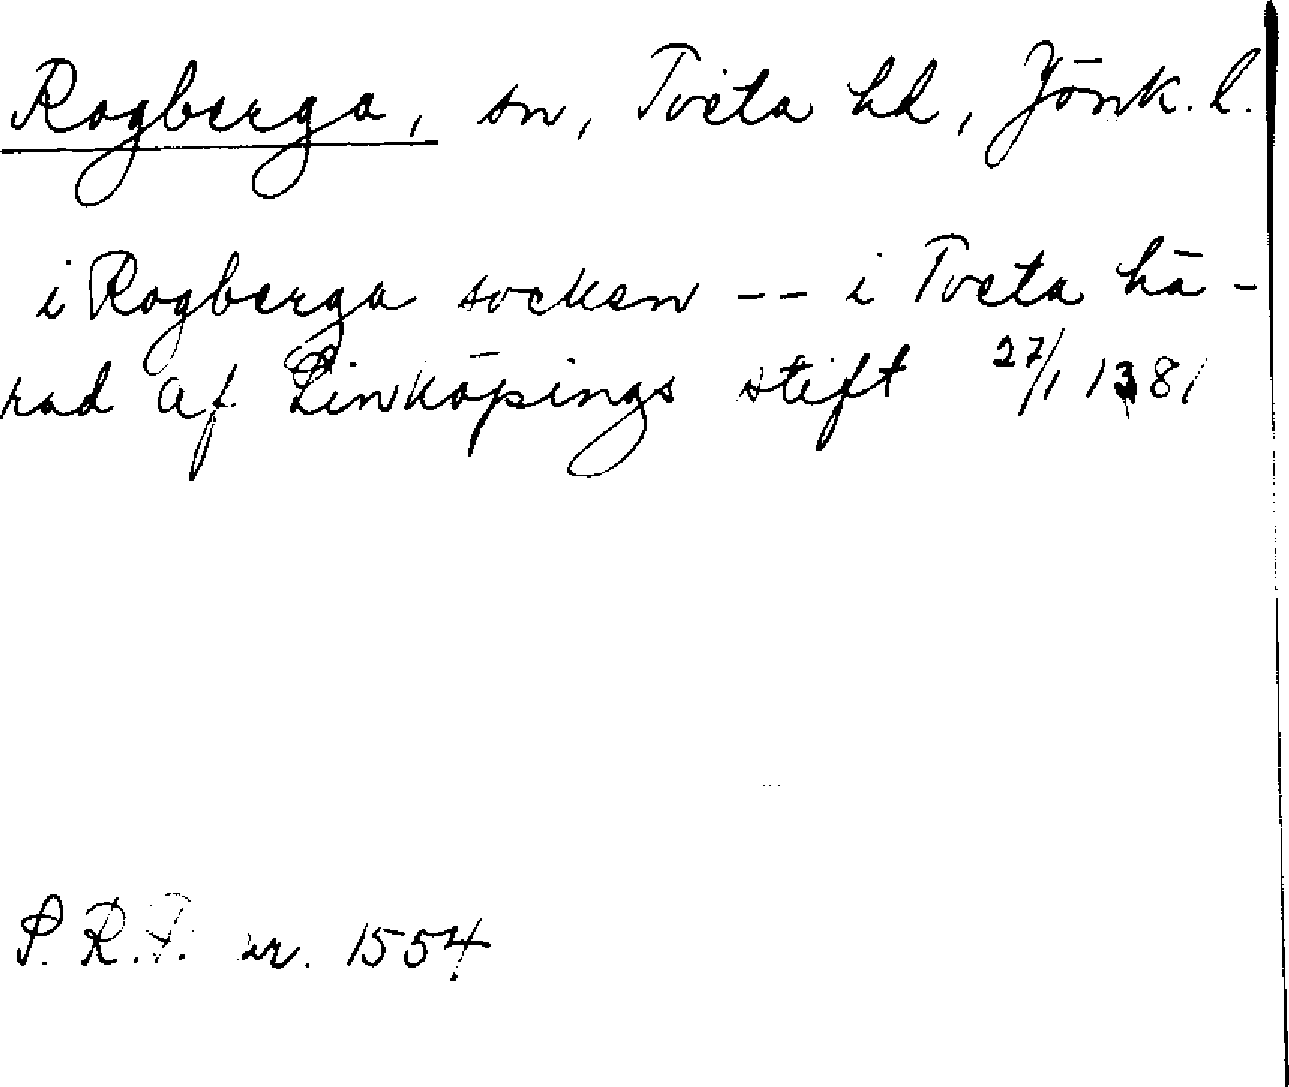 Rogberga, sn, Tveta hd, Jönk. l.
i Rogberga socken -- i Tveta hä-
rad af Linköpings stift 27/1 1381
P. R. P. nr. 1554